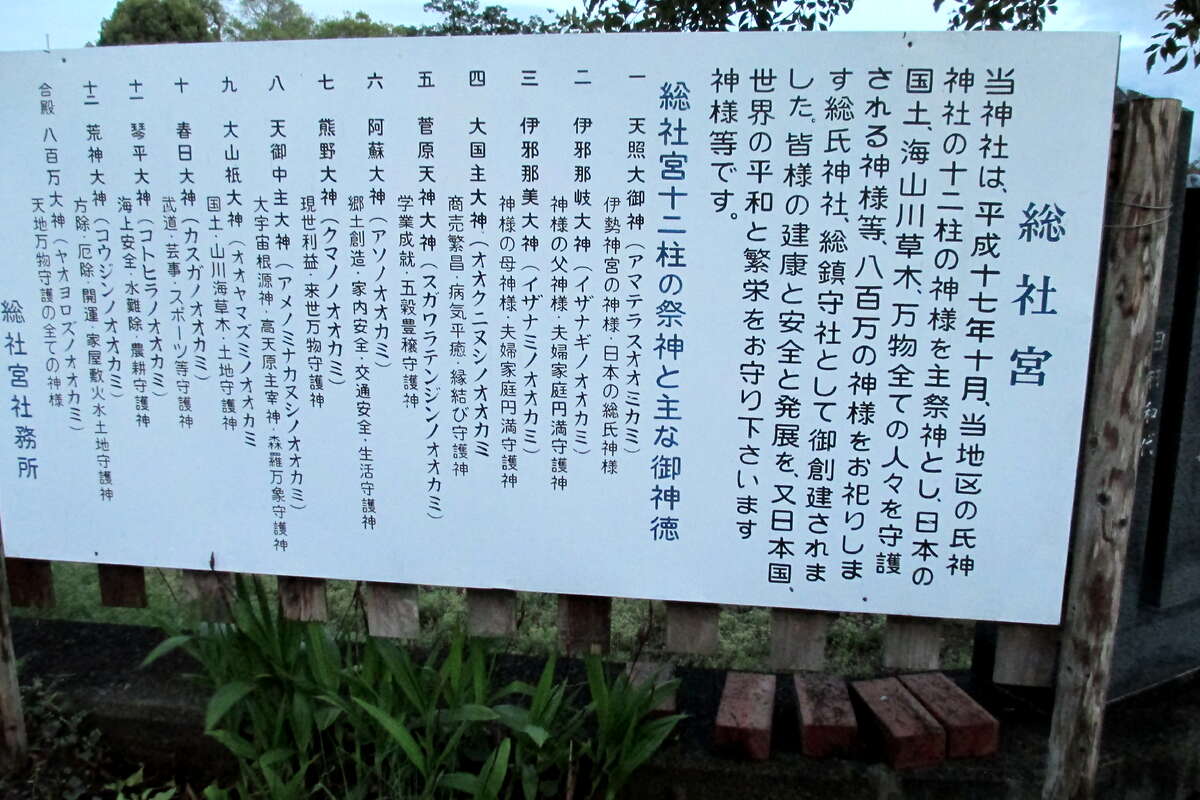 総社宮
当神社は、平成十七年十月、当地区の氏神
神社の十二柱の神様を主祭神とし、日本の
国土、海山川草木、万物全ての人々を守護
される神様等、八百万の神様をお祀りしま
す総氏神社、総鎮守社として御創建されま
した。皆様の建康と安全と発展を、又日本国、
世界の平和と繁栄をお守り下さいます
神様等です。
総社宮十二柱の祭神と主な御神徳
一 天照大御神（アマテラスオオミカミ）
伊勢神宮の神様・日本の総氏神様
二 伊邪那岐大神（イザナギノオオカミ）
神様の父神様・夫婦家庭円満守護神
三 伊邪那美大神（イザナミノオオカミ）
神様の母神様・夫婦家庭円満守護神
四 大国主大神（オオクニヌシノオオカミ
商売繁昌・病気平癒・縁結び守護神
五 菅原天神大神（スガワラテンジンノオオカミ）
学業成就・五穀豊穣守護神
六 阿蘇大神（アソノオオカミ）
郷土創造・家内安全・交通安全・生活守護神
七 熊野大神（クマノノオオカミ）
現世利益・来世万物守護神
八 天御中主大神（アメノミナカヌシノオオカミ）
大宇宙根源神・高天原主宰神・森羅万象守護神
九 大山祇大神（オオヤマズミノオオカミ
国土・山川海草木・土地守護神
十 春日大神（カスガノオオカミ）
武道・芸事・スポーツ等守護神
十一 琴平大神（コトヒラノオオカミ）
海上安全・水難除・農耕守護神
十二 荒神大神（コウジンノオオカミ）
方除・厄除・開運・家屋敷火水土地守護神
合殿 八百万大神（ヤオヨロズノオオカミ）
天地万物守護の全ての神様
総社宮社務所